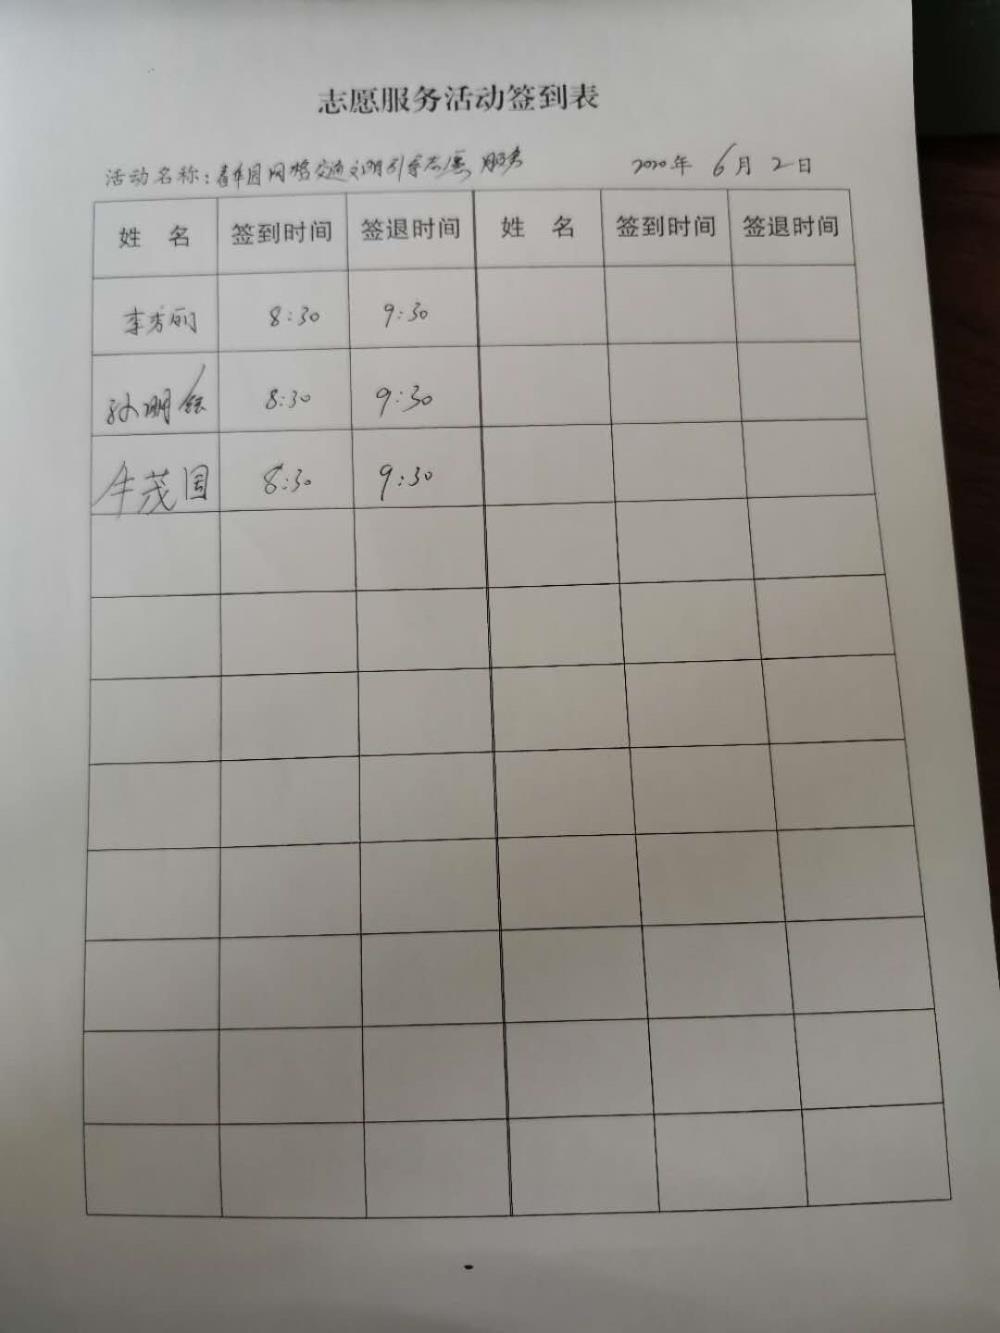 志愿服务活动签到表
活动名称：园网格交通文明引导志愿服务 2020年6月2日
姓 名 签到时间 签退时间 姓 名 签到时间 签退时间
李秀丽 8:30 9:30
孙明 8:30 9:30
牛茂国 8:30 9:30